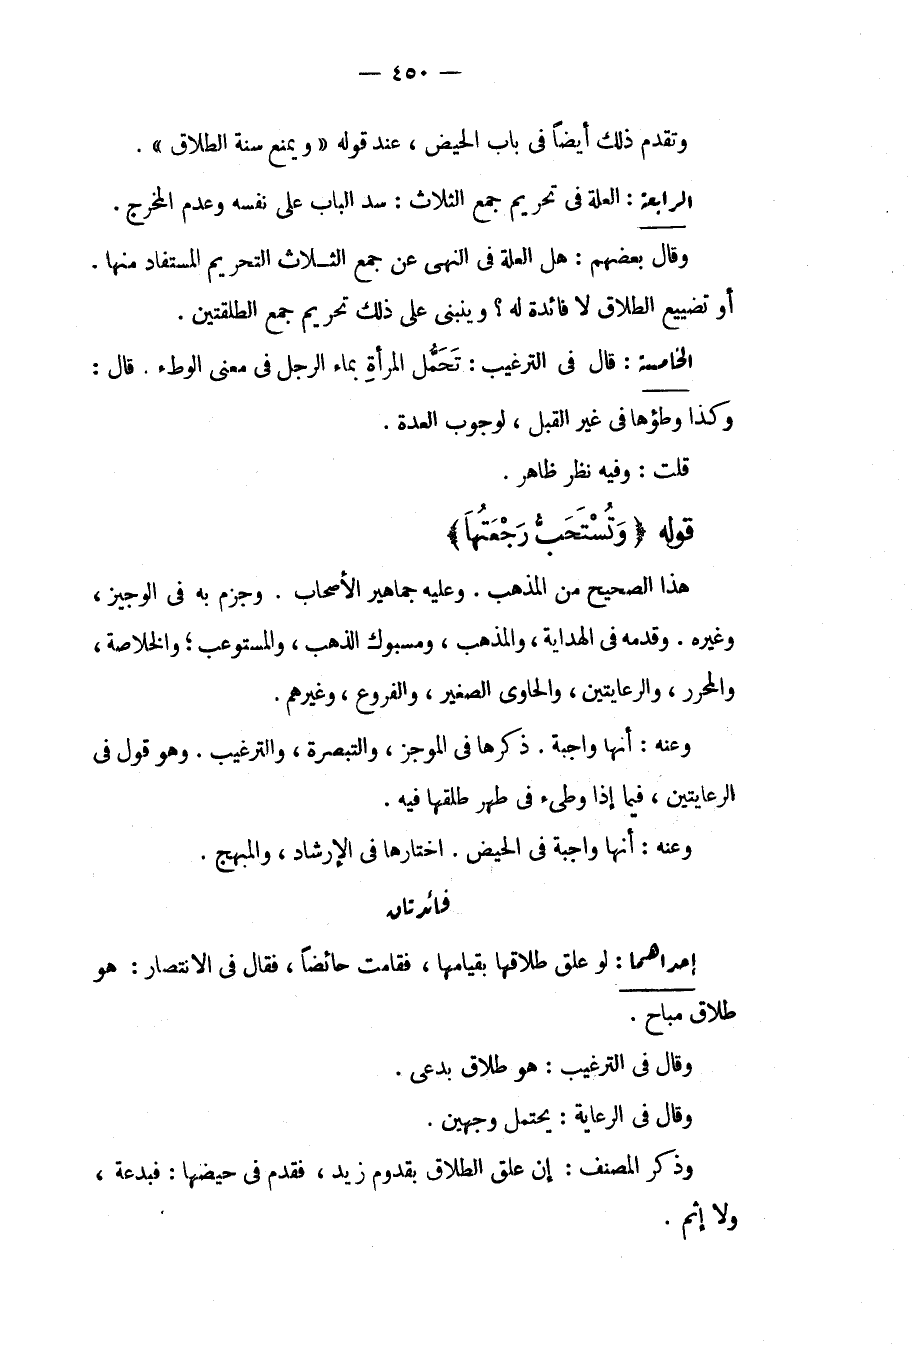 — ٤٥٠ —
وتقدم ذلك أيضاً فى باب الحيض ، عند قوله « ويمنع سنة الطلاق » .
الرابعة : العلة فى تحريم جمع الثلاث : سد الباب على نفسه وعدم المخرج .
وقال بعضهم : هل العلة فى النهى عن جمع الثــلاث التحريم المستفاد منها .
أو تضييع الطلاق لا فائدة له ؟ وينبنى على ذلك تحريم جمع الطلقتين .
الخامسة : قال فى الترغيب : تَحَمُّل المرأةِ بماء الرجل فى معنى الوطء . قال :
وكذا وطؤها فى غير القبل ، لوجوب العدة .
قلت : وفيه نظر ظاهر .
قوله ﴿ وَتُسْتَحَبُّ رَجْعَتُهَا ﴾
هذا الصحيح من المذهب . وعليه جماهير الأصحاب . وجزم به فى الوجيز ،
وغيره . وقدمه فى الهداية ، والمذهب ، ومسبوك الذهب ، والمستوعب ؛ والخلاصة ،
والمحرر ، والرعايتين ، والحاوى الصغير ، والفروع ، وغيرهم .
وعنه : أنها واجبة . ذكرها فى الموجز ، والتبصرة ، والترغيب . وهو قول فى
الرعايتين ، فيما إذا وطىء فى طهر طلقها فيه .
وعنه : أنها واجبة فى الحيض . اختارها فى الإرشاد ، والمبهج .
فائدتان
إحداهما : لو علق طلاقها بقيامها ، فقامت حائضاً ، فقال فى الانتصار : هو
طلاق مباح .
وقال فى الترغيب : هو طلاق بدعى .
وقال فى الرعاية : يحتمل وجهين .
وذكر المصنف : إن علق الطلاق بقدوم زيد ، فقدم فى حيضها : فبدعة ،
ولا إثم .